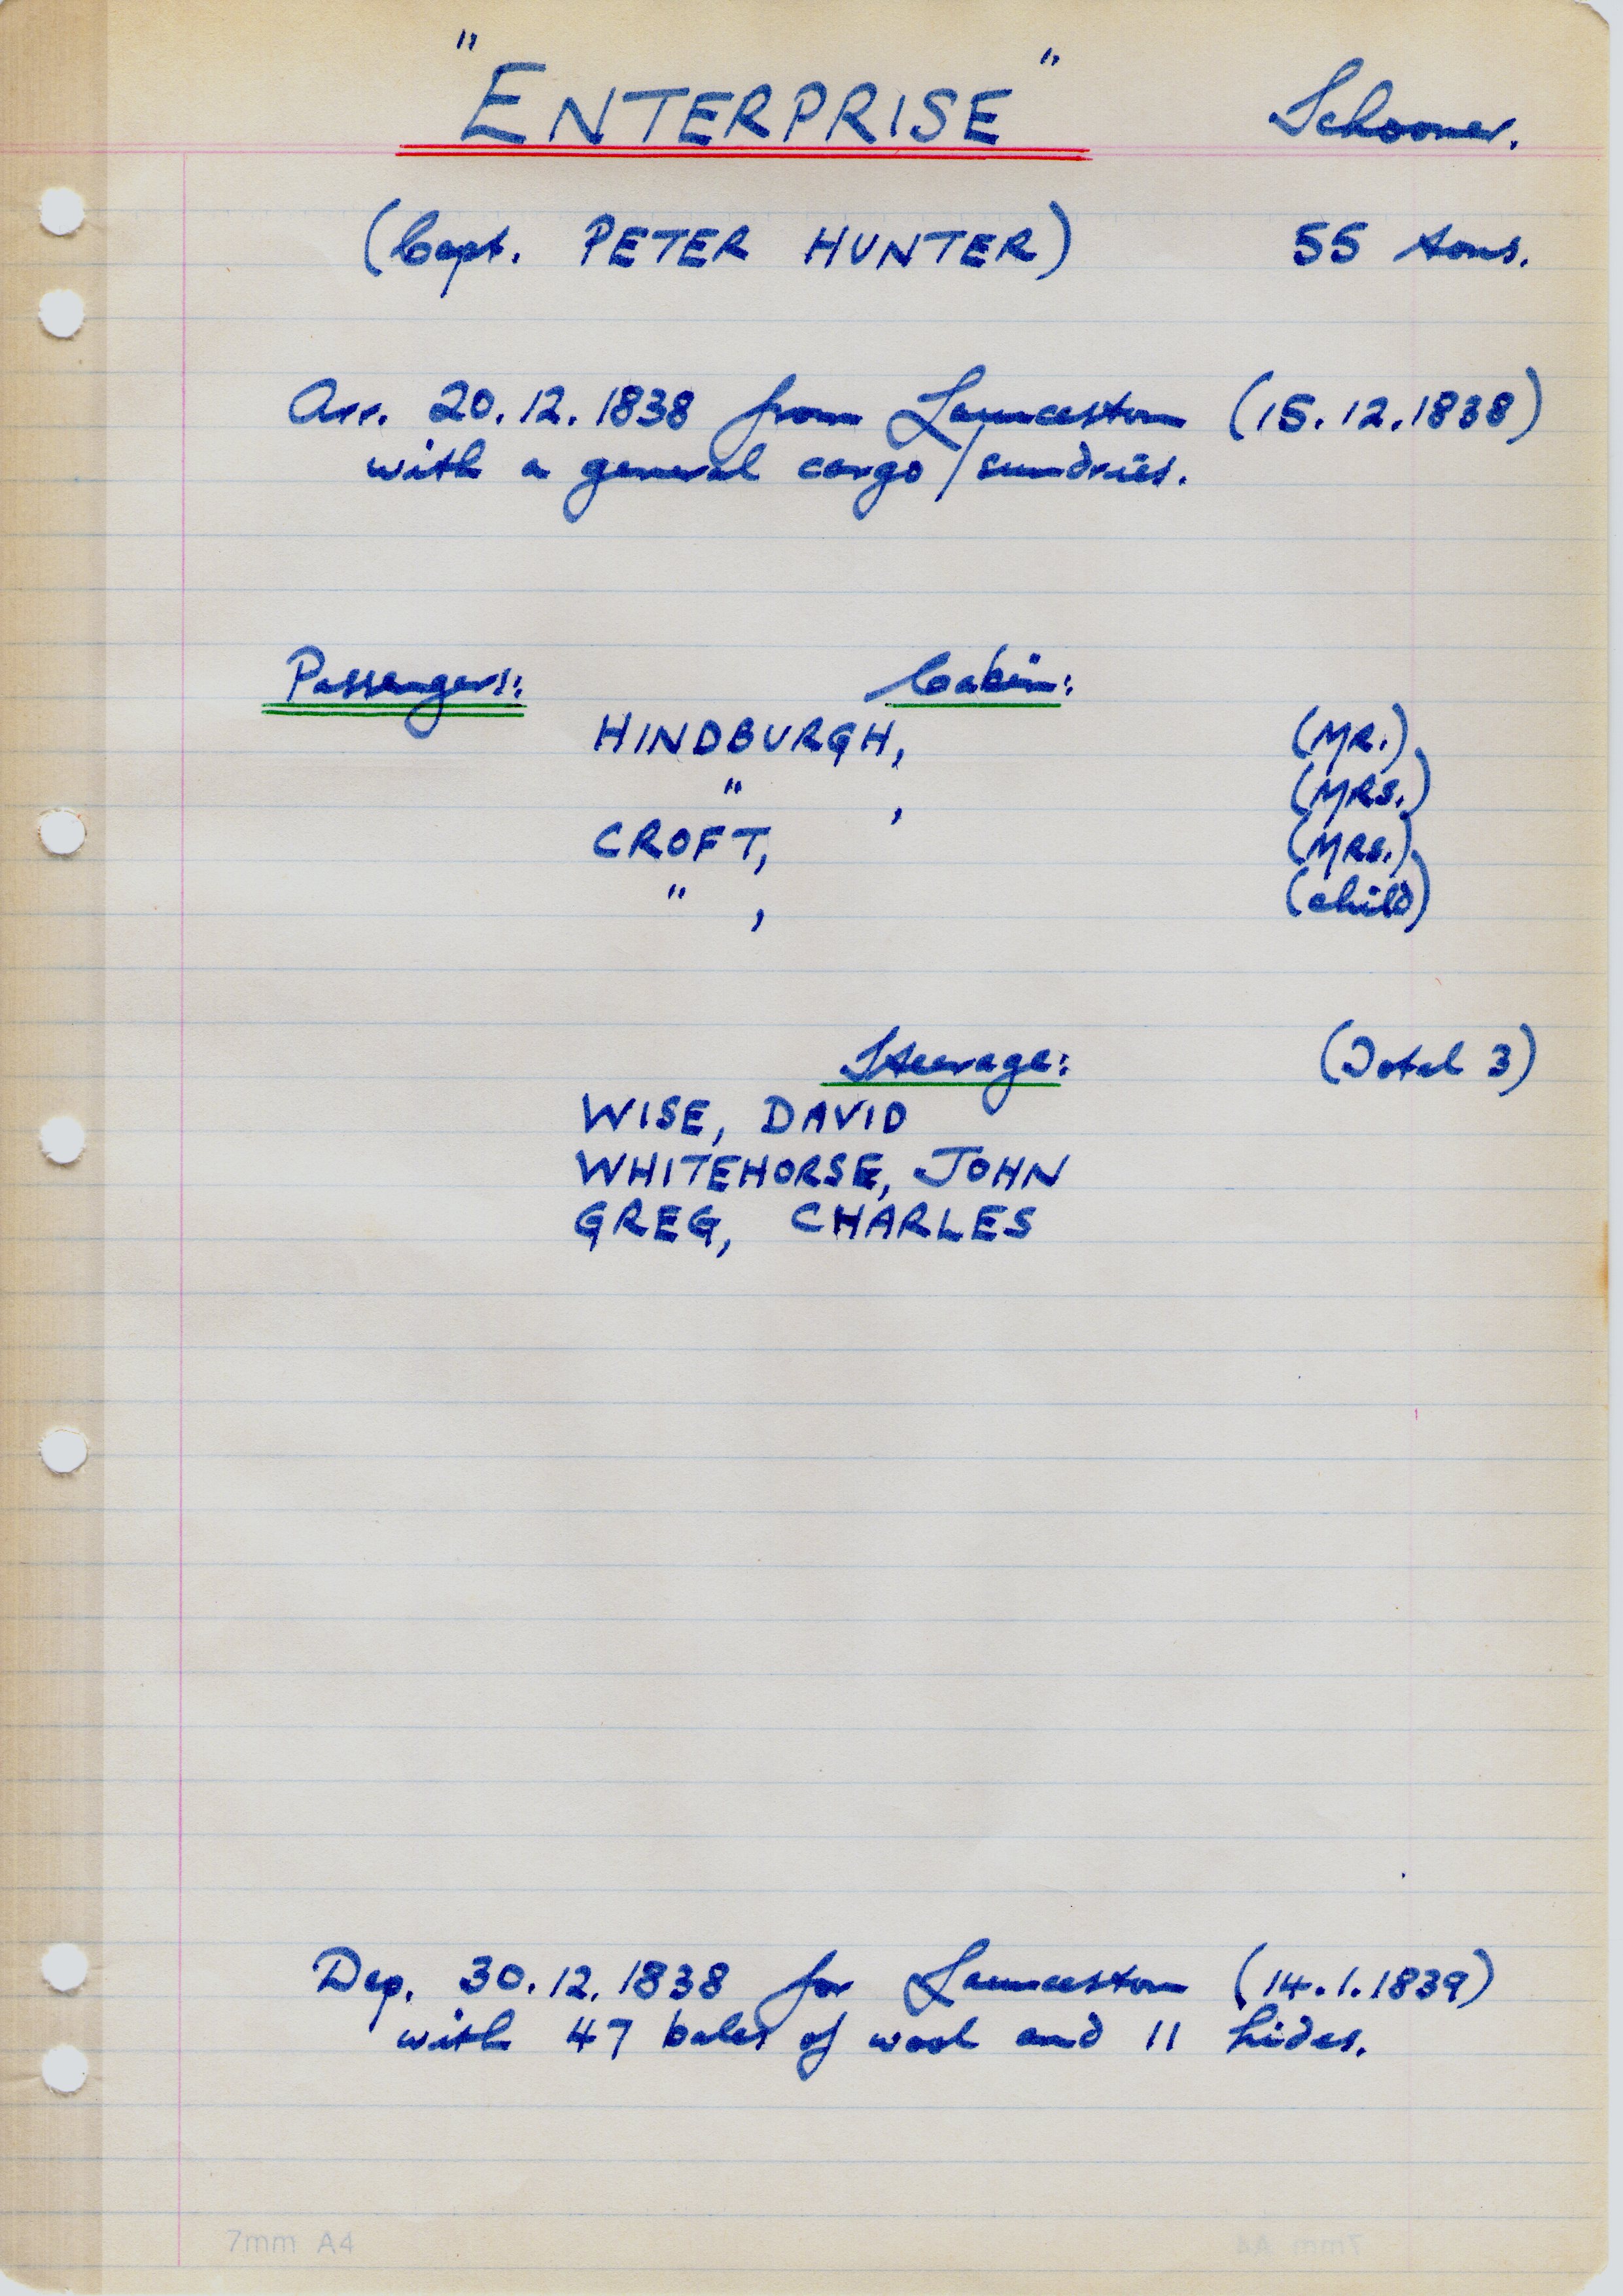 "ENTERPRISE" Schooner.
(Capt. PETER HUNTER) 55 tons.
Arr. 20.12.1838 from Launceston (15.12.1838)
with a general cargo/sundries.
Passengers: Cabin:
HINDBURGH, (MR.)
" , (MRS.)
CROFT, (MRS.)
" , (child)
Steerage: (Total 3)
WISE, DAVID
WHITEHORSE, JOHN
GREG, CHARLES
Dep. 30.12.1838 for Launceston (14.1.1839)
with 47 bales of wool and 11 hides.
7mm A4